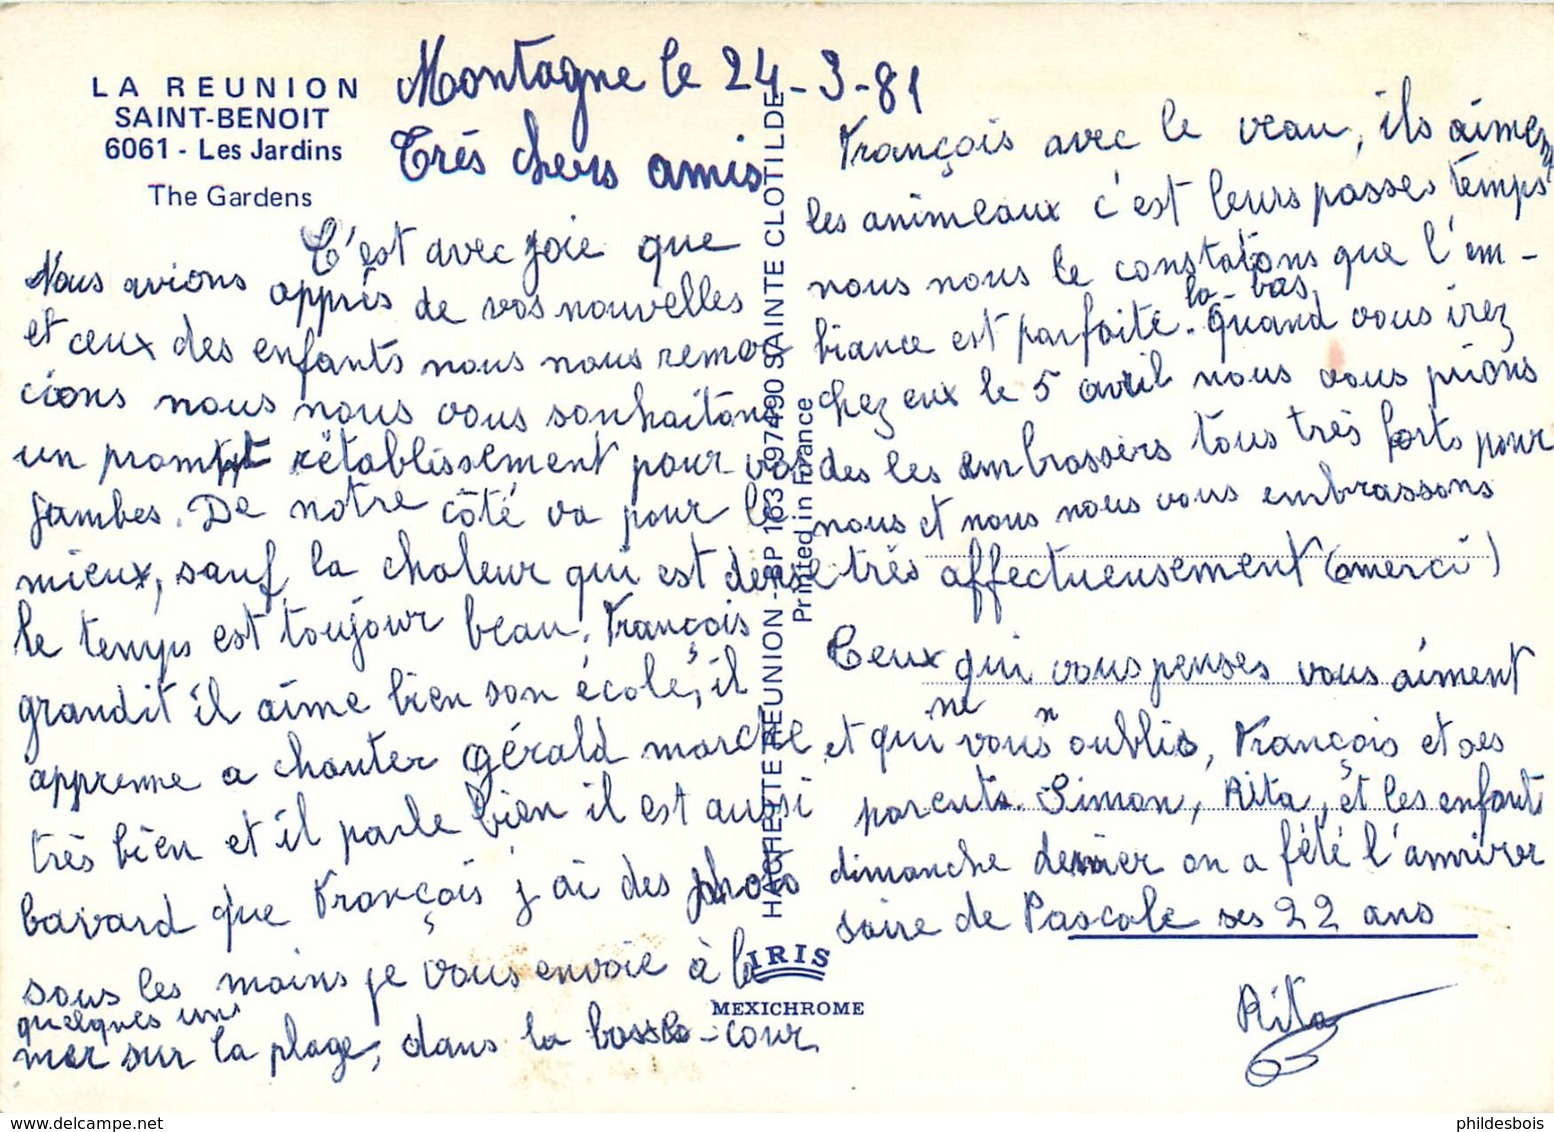 LA REUNION
SAINT-BENOIT
6061 - Les Jardins
The Gardens
Montagne le 24-3-81
Très chers amis
C'est avec joie que
Nous avions appris de vos nouvelles
et ceux des enfants nous nous remer
cions nous nous vous souhaitons
un prompt rétablissement pour vos
jambes. De notre côté va pour le
mieux, sauf la chaleur qui est dense
le temps est toujour beau. François
grandit il aime bien son école, il
apprenne a chanter Gérald marche
très bien et il parle bien il est aussi
bavard que François j'ai des photos
sous les mains je vous envoie à la
quelques uns
mer sur la plage, dans la basse-cour
François avec le veau, ils aiment
les animeaux c'est leurs passes temps
nous nous le constatons que l'em-
là-bas
biance est parfaite. Quand vous irez
chez eux le 5 avril nous vous prions
des les embrassers tous très forts pour
nous et nous nous vous embrassons
très affectueusement (merci)
Ceux qui vous penses vous aiment
ne n
et qui vous oublis, François et ses
parents. Simon, Rita, et les enfants
dimanche dernier on a fêté l'anniver
saire de Pascale ses 22 ans
Rita
HACHETTE REUNION - BP 163 - 97490 SAINTE CLOTILDE
Printed in France
IRIS
MEXICHROME
phildesbois